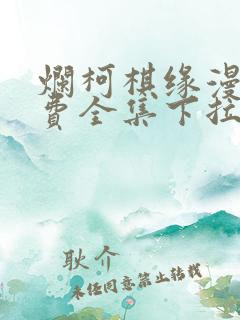 爛柯棋缘漫
费全集下拉
耿介
未经同意禁止转载